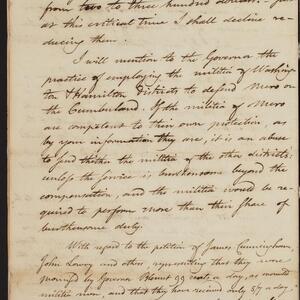 from two to three hundred dollars.
at this critical time I shall decline re-
ducing them.
I will mention to the Governor the
practice of employing the militia of Washing-
ton & Hamilton Districts to defend Mero or
the Cumberland. If the militia of Mero
are competent to their own protection, as
by your information they are, it is an abuse
to send thither the militia of the other districts;
unless the service is burthensome beyond the
compensation, and the militia would be re-
quired to perform more than their share of
burthensome duty.
With regard to the petition of James Cunningham,
John Lowry and others, representing that they were
mounted by Governor Blount 99 Cents a day, as mounted
militia men, and that they have received only 57/ a day,